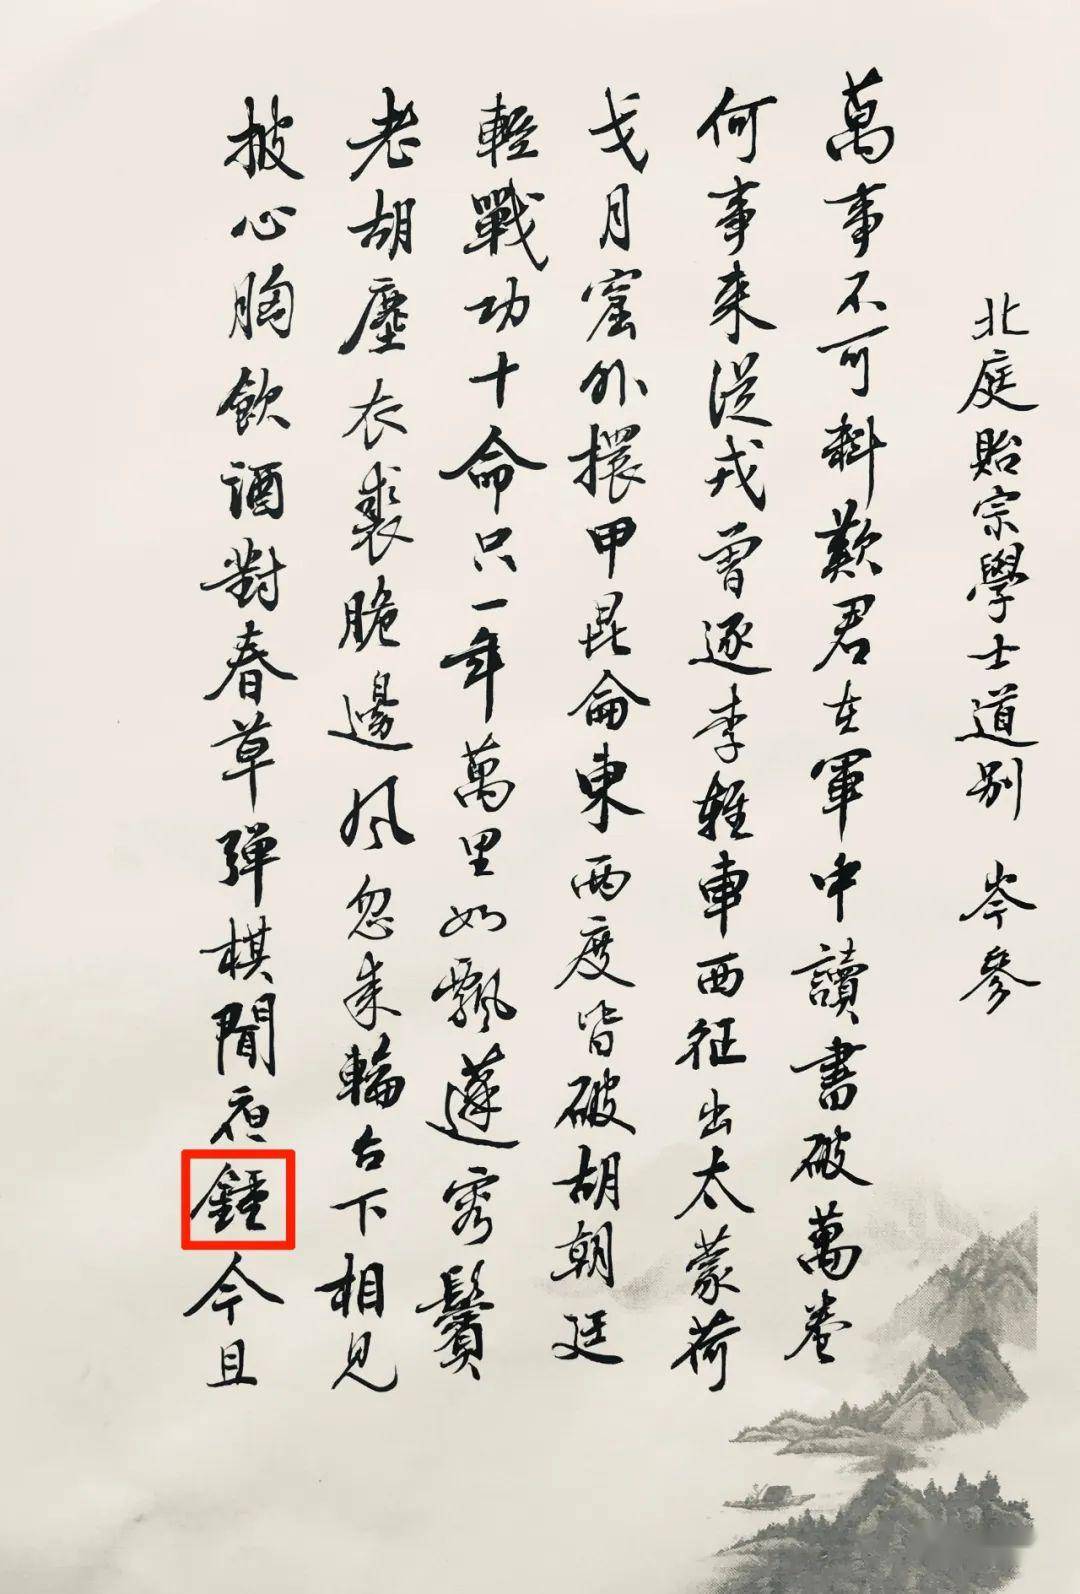 北庭貽宗學士道别 岑參
萬事不可料歎君在軍中讀書破萬卷
何事來從戎曾逐李輕車西征出太蒙荷
戈月窟外擐甲昆侖東兩度皆破胡朝廷
輕戰功十命只一年萬里如飄蓬容鬢
老胡塵衣裘脆邊风忽来輪台下相見
披心胸飲酒對春草弹棋聞夜鍾今且